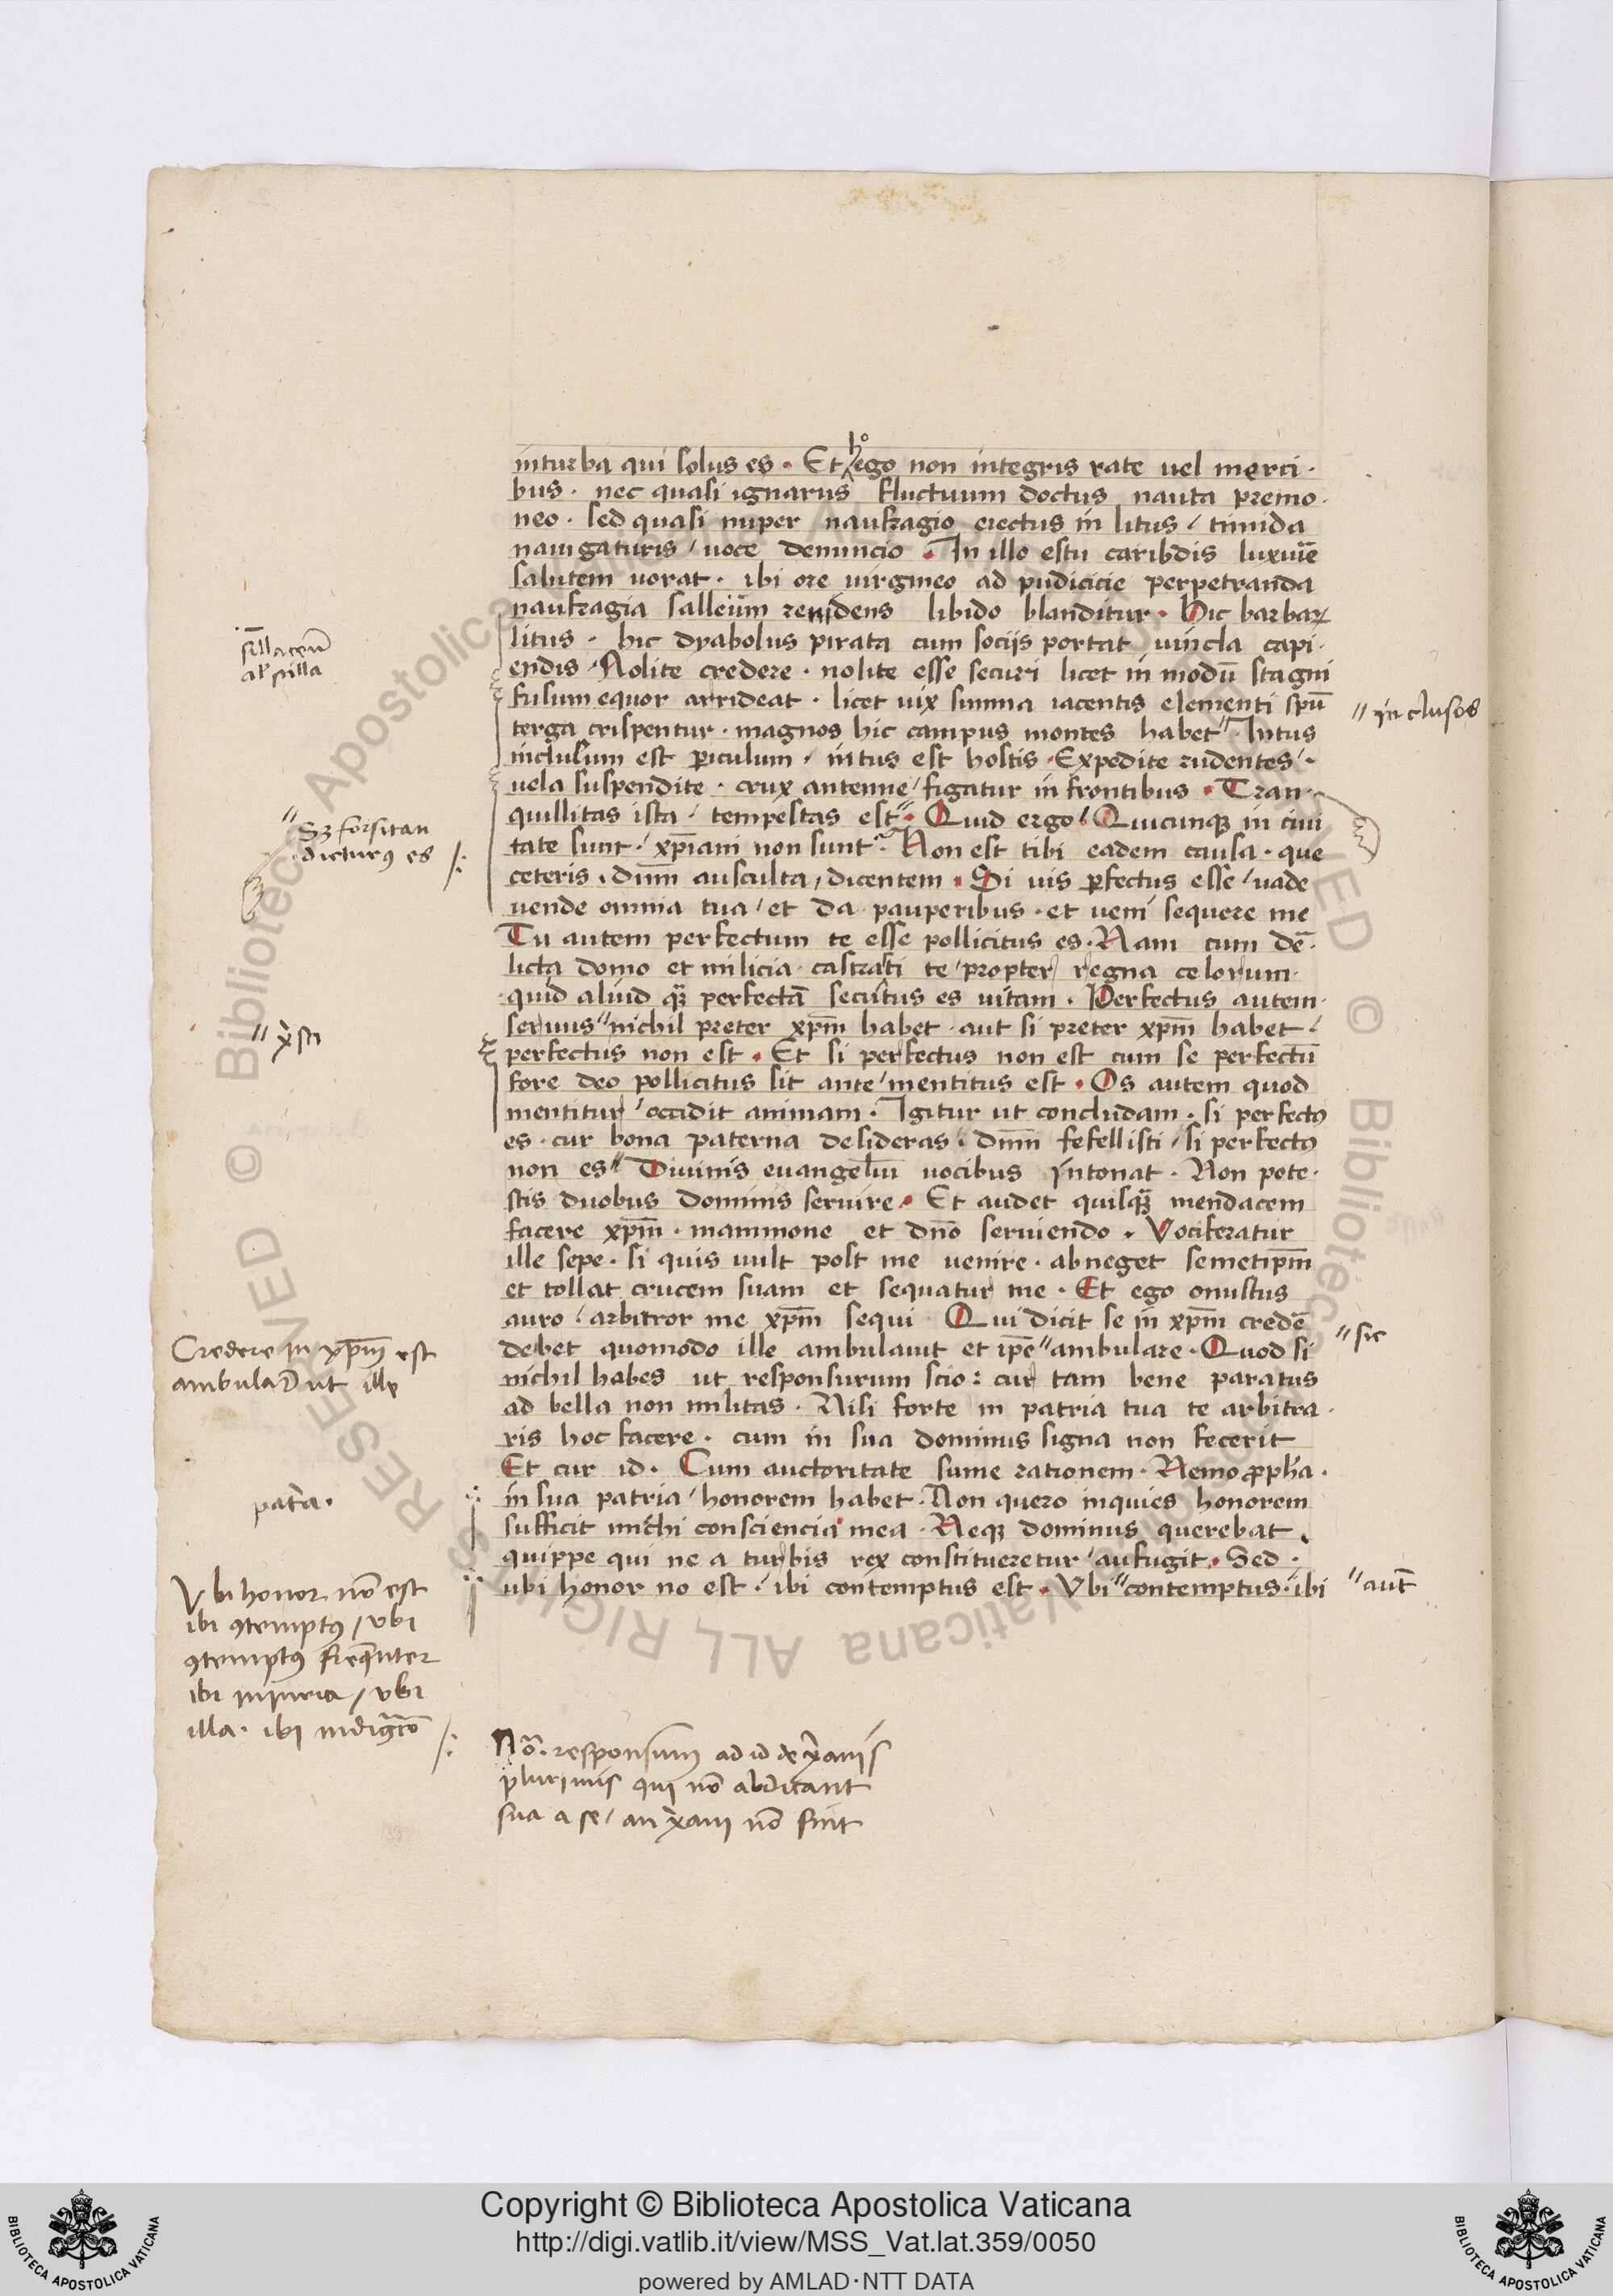 inturba qui solus es · Et ego non integris rate uel merci ·
h°
bus · nec quasi ignarus fluctuum doctus nauta premo ·
neo · sed quasi nuper naufragio eiectus in litus / timida
nauigaturis / uoce denuncio · In illo estu caribdis luxuriē
salutem uorat · ibi ore uirgineo ad pudicicie perpetranda
naufragia salleum renidens libido blanditur · Hic barbaꝝ
litus · hic dyabolus pirata cum socijs portat uincla capi ·
endis · Nolite credere · nolite esse securi licet in modū stagni
fusum equor arrideat · licet uix summa iacentis elementi spū
terga crispentur · magnos hic campus montes habet " Intus
inclusum est ꝑiculum / intus est hostis · Expedite rudentes / ·
uela suspendite · crux antenne / figatur in frontibus · Tran ·
quillitas ista / tempestas est " · Quid ergo / Quicunqꝫ in ciui
tate sunt / xp̄iani non sunt · Non est tibi eadem causa · que
ceteris · dn̄m ausculta / dicentem · Si uis ꝑfectus esse / uade
uende omnia tua / et da pauperibus · et ueni sequere me
Tu autem perfectum te esse pollicitus es · Nam cum dē ·
licta domo et milicia · castrasti te / propter regna celorum ·
quid aliud qꝫ perfectā secutus es uitam · Perfectus autem ·
seruus " nichil preter xp̄m habet · aut si preter xp̄m habet /
perfectus non est · Et si perfectus non est cum se perfectū
fore deo pollicitus sit ante / mentitus est · Os autem quod
mentitur / occidit animam · Igitur ut concludam · si perfectꝰ
es · cur bona paterna desideras · dn̄m fefellisti / si perfectꝰ
non es " Diuinis euangeliū uocibus intonat · Non pote ·
stis duobus dominis seruire · Et audet quisqꝫ mendacem
facere xp̄m · mammone et dn̄o seruiendo · Vociferatur
ille sepe · si quis uult post me uenire · abneget semetip̄m
et tollat crucem suam et sequatur me · Et ego onustus
auro / arbitror me xp̄m sequi Qui dicit se in xp̄m credē
debet quomodo ille ambulauit et ip̄e " ambulare · Quod si
nichil habes ut responsurum scio : cur tam bene paratus
ad bella non militas · Nisi forte in patria tua te arbitra ·
ris hoc facere · cum in sua dominus signa non fecerit
Et cur id · Cum auctoritate sume rationem · Nemo ꝓpha ·
in sua patria / honorem habet · Non quero inquies honorem
sufficit michi consciencia mea · Neqꝫ dominus querebat ·
quippe qui ne a turbis rex constitueretur / aufugit · Sed ·
ubi honor no est / ibi contemptus est · Vbi " contemptus · ibi
al' scilla
" Sꝫ forsitan
dicturꝰ es
" x̄sti
Credere in xp̄m est
ambulare ut ille
pat'a ·
Vbi honor nō est
ibi ꝯtemptꝰ / vbi
ꝯtemptꝰ freq̄nter
ibi iniuria / vbi
illa · ibi indigc̄o
" inclusos
" sic
" aut̄
No · responsum ad id de x̄anis
plurimis qui nō abdicant
sua a se / an x̄ani nō sint
Copyright © Biblioteca Apostolica Vaticana
http://digi.vatlib.it/view/MSS_Vat.lat.359/0050
powered by AMLAD·NTT DATA